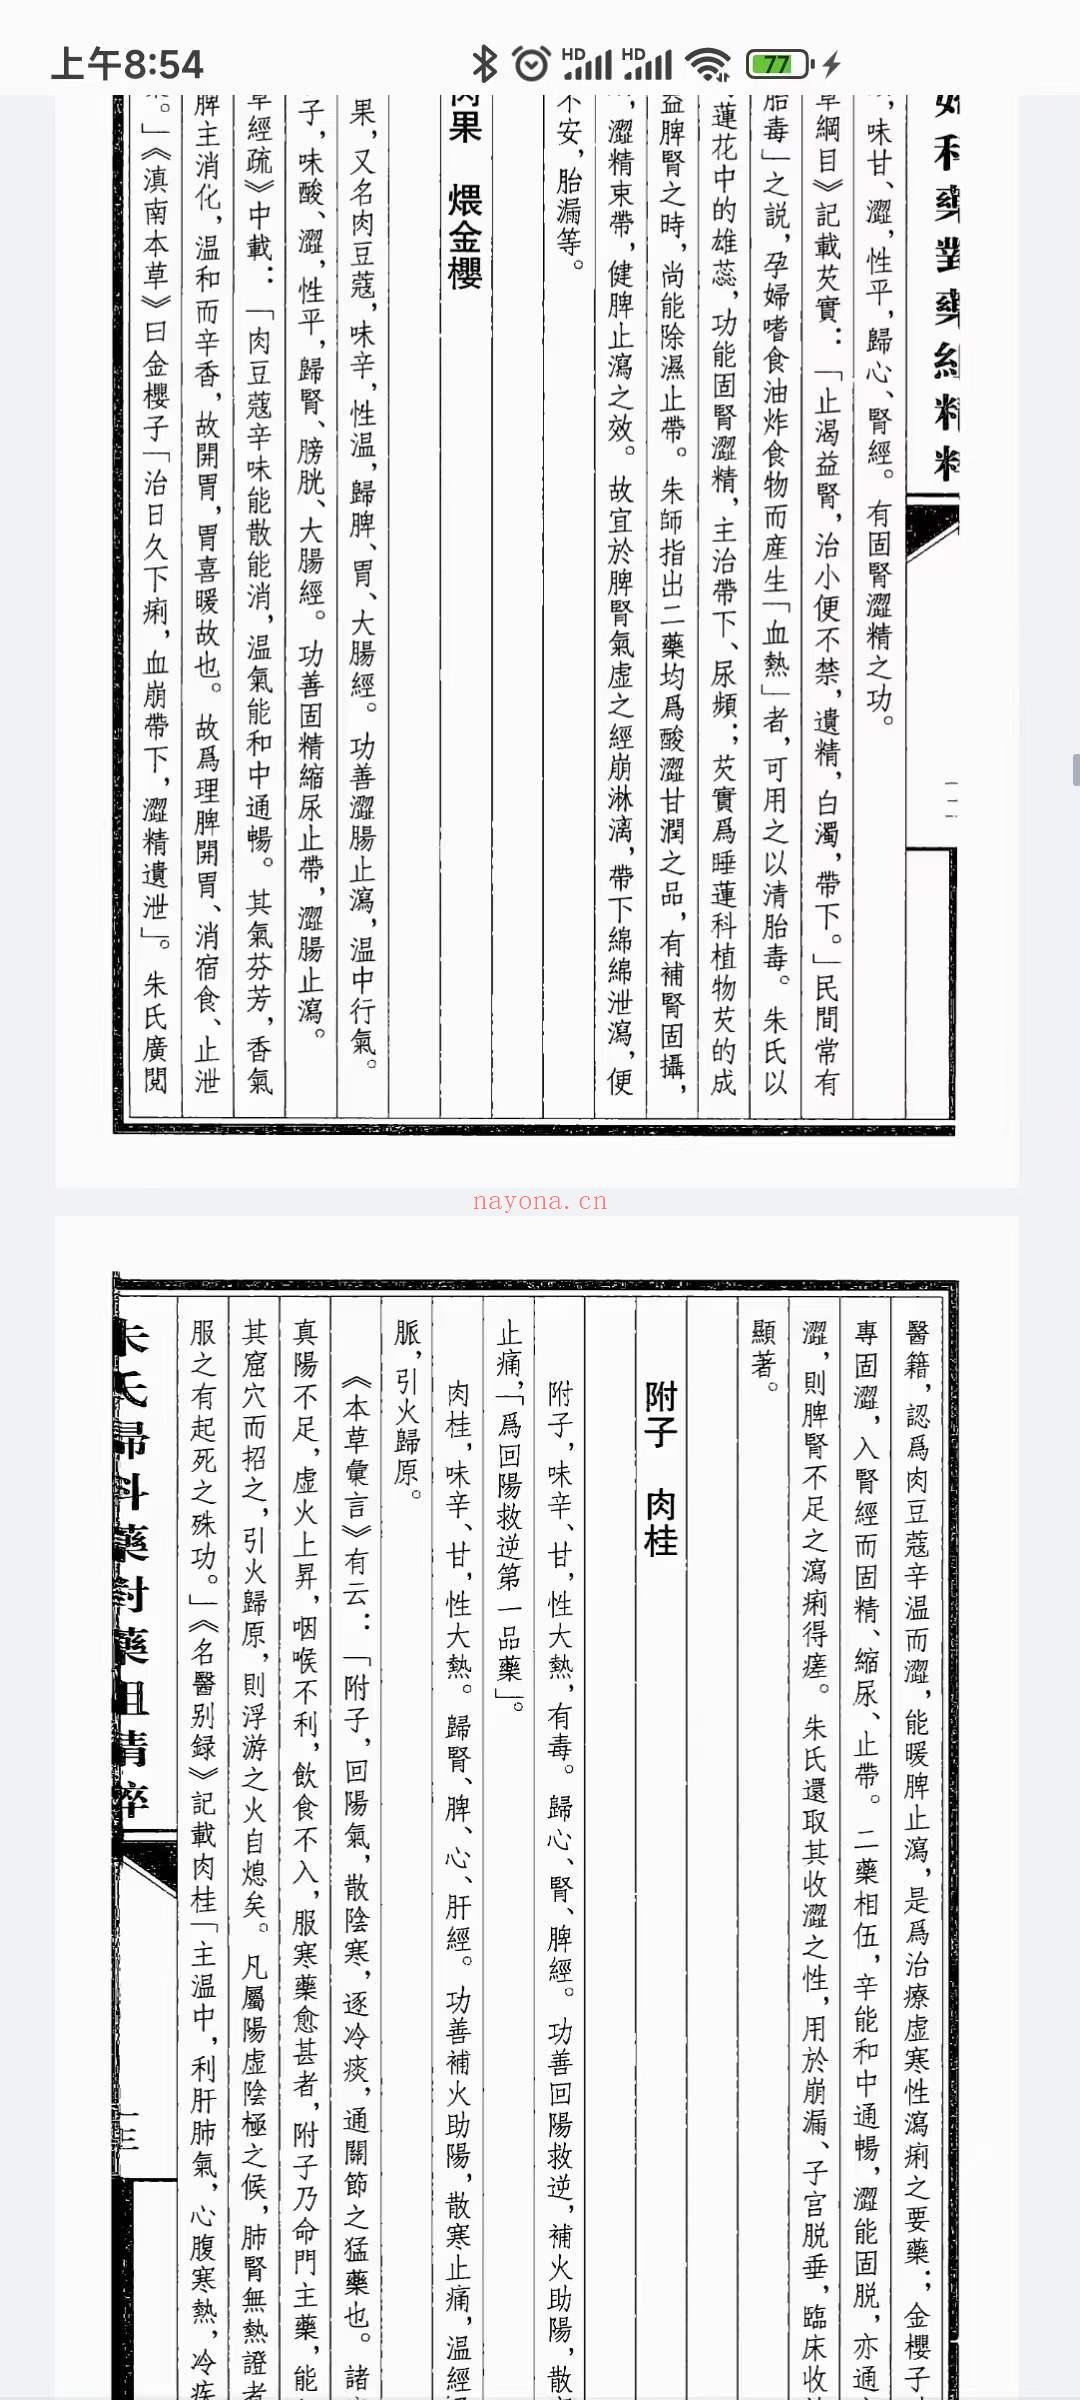 上午8:54
HD
HD
77
婦科藥對藥組精粹
一二
，味甘、澀，性平，歸心、腎經。有固腎澀精之功。
草綱目》記載芡實：「止渴益腎，治小便不禁，遺精，白濁，帶下。」民間常有
胎毒」之説，孕婦嗜食油炸食物而産生「血熱」者，可用之以清胎毒。朱氏以
蓮花中的雄蕊，功能固腎澀精，主治帶下、尿頻；芡實爲睡蓮科植物芡的成
益脾腎之時，尚能除濕止帶。朱師指出二藥均爲酸澀甘潤之品，有補腎固攝，
，澀精束帶，健脾止瀉之效。故宜於脾腎氣虛之經崩淋漓，帶下綿綿泄瀉，便
不安，胎漏等。
肉果　煨金櫻
果，又名肉豆蔻，味辛，性温，歸脾、胃、大腸經。功善澀腸止瀉，温中行氣。
子，味酸、澀，性平，歸腎、膀胱、大腸經。功善固精縮尿止帶，澀腸止瀉。
草經疏》中載：「肉豆蔻辛味能散能消，温氣能和中通暢。其氣芬芳，香氣
脾主消化，温和而辛香，故開胃，胃喜暖故也。故爲理脾開胃、消宿食、止泄
。」《滇南本草》曰金櫻子「治日久下痢，血崩帶下，澀精遺泄」。朱氏廣閲
nayona.cn
醫籍，認爲肉豆蔻辛温而澀，能暖脾止瀉，是爲治療虛寒性瀉痢之要藥；金櫻子
專固澀，入腎經而固精、縮尿、止帶。二藥相伍，辛能和中通暢，澀能固脱，亦通
澀，則脾腎不足之瀉痢得瘥。朱氏還取其收澀之性，用於崩漏、子宫脱垂，臨床收
顯著。
附子　肉桂
附子，味辛、甘，性大熱，有毒。歸心、腎、脾經。功善回陽救逆，補火助陽，散
止痛，「爲回陽救逆第一品藥」。
肉桂，味辛、甘，性大熱。歸腎、脾、心、肝經。功善補火助陽，散寒止痛，温經
脈，引火歸原。
《本草彙言》有云：「附子，回陽氣，散陰寒，逐冷痰，通關節之猛藥也。諸
真陽不足，虛火上昇，咽喉不利，飲食不入，服寒藥愈甚者，附子乃命門主藥，能
其窟穴而招之，引火歸原，則浮游之火自熄矣。凡屬陽虛陰極之候，肺腎無熱證者
服之有起死之殊功。」《名醫别録》記載肉桂「主温中，利肝肺氣，心腹寒熱，冷疾
朱氏婦科藥對藥組精粹
一三